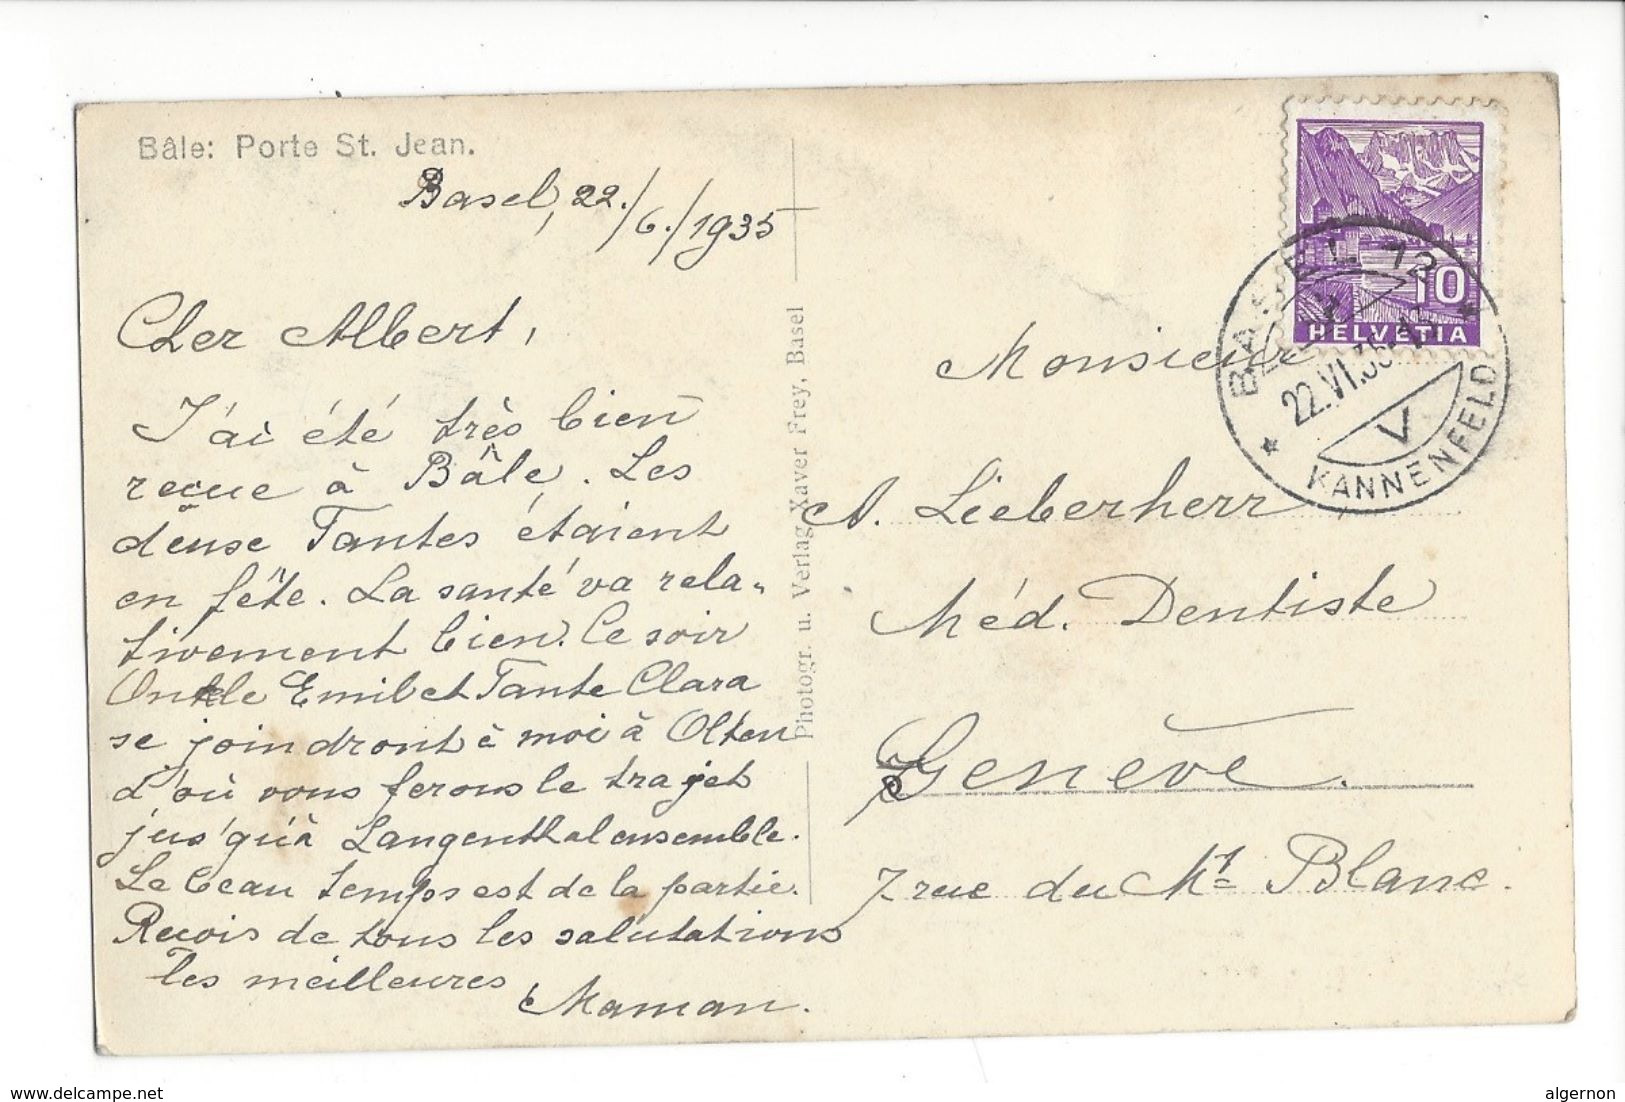 Bâle: Porte St. Jean.
Basel, 22./6./1935
Cher Albert,
J'ai été très bien
reçue à Bâle. Les
deuse Tantes étaient
en fête. La santé va rela-
tivement bien. Ce soir
Onkle Emil et Tante Clara
se joindront à moi à Olten
d'où vous ferons le trajet
jus'qu'à Langenthal ensemble.
Le beau temps est de la partie.
Reçois de tous les salutations
les meilleures
Maman.
Photogr. u. Verlag Xaver Frey, Basel
10
HELVETIA
BASEL 12
22.VI.35
V
KANNENFELD
Monsieur
A. Lieberherr
Méd. Dentiste
Genève.
7 rue du Mt Blanc.
www.delcampe.net
algernon